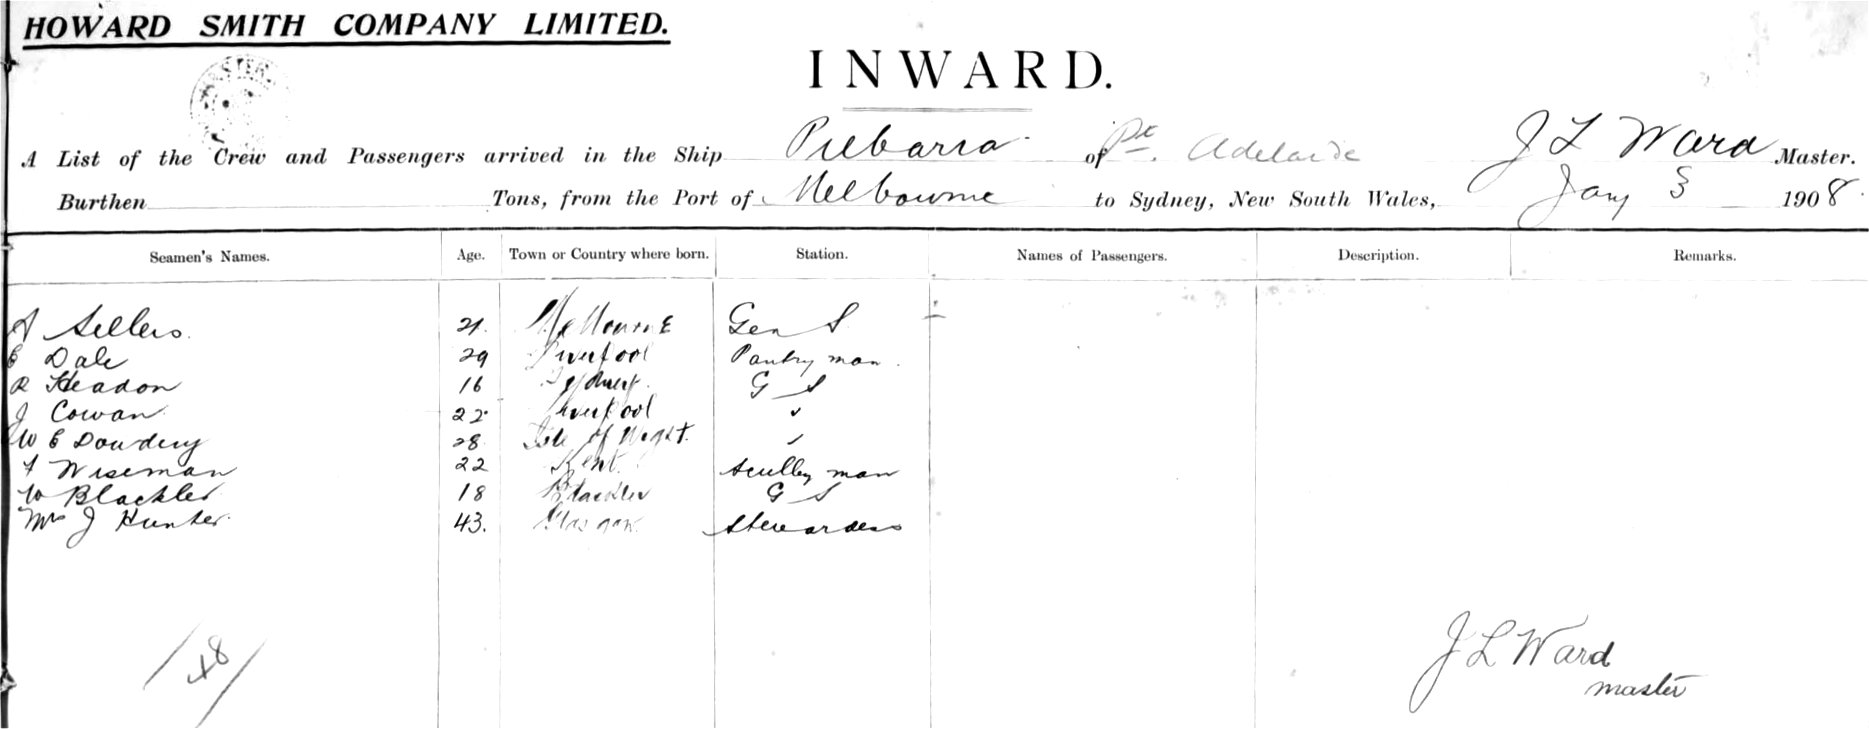 HOWARD SMITH COMPANY LIMITED.
INWARD.
A List of the Crew and Passengers arrived in the Ship Pilbarra of Pt. Adelaide J L Ward Master.
Burthen Tons, from the Port of Melbourne to Sydney, New South Wales, Jany 3 1908.
Seamen's Names. Age. Town or Country where born. Station. Names of Passengers. Description. Remarks.
A Sellers. 21. Melbourne Gen S
E Dale 29 Liverpool Pantry man.
R Headon 16 G S
J Cowan 22 Liverpool "
W E Dowdeny 28 Isle of Wight. "
F Wiseman 22 Kent. Scullery man
W Blackler 18 Blackler G S
Mrs J Hunter. 43. Glasgow. Stewardess
48
J L Ward
master